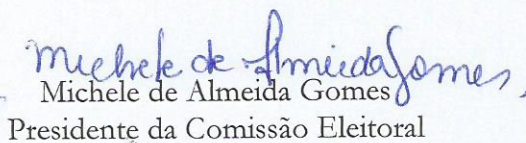 Michele de Almeida Gomes
Michele de Almeida Gomes
Presidente da Comissão Eleitoral